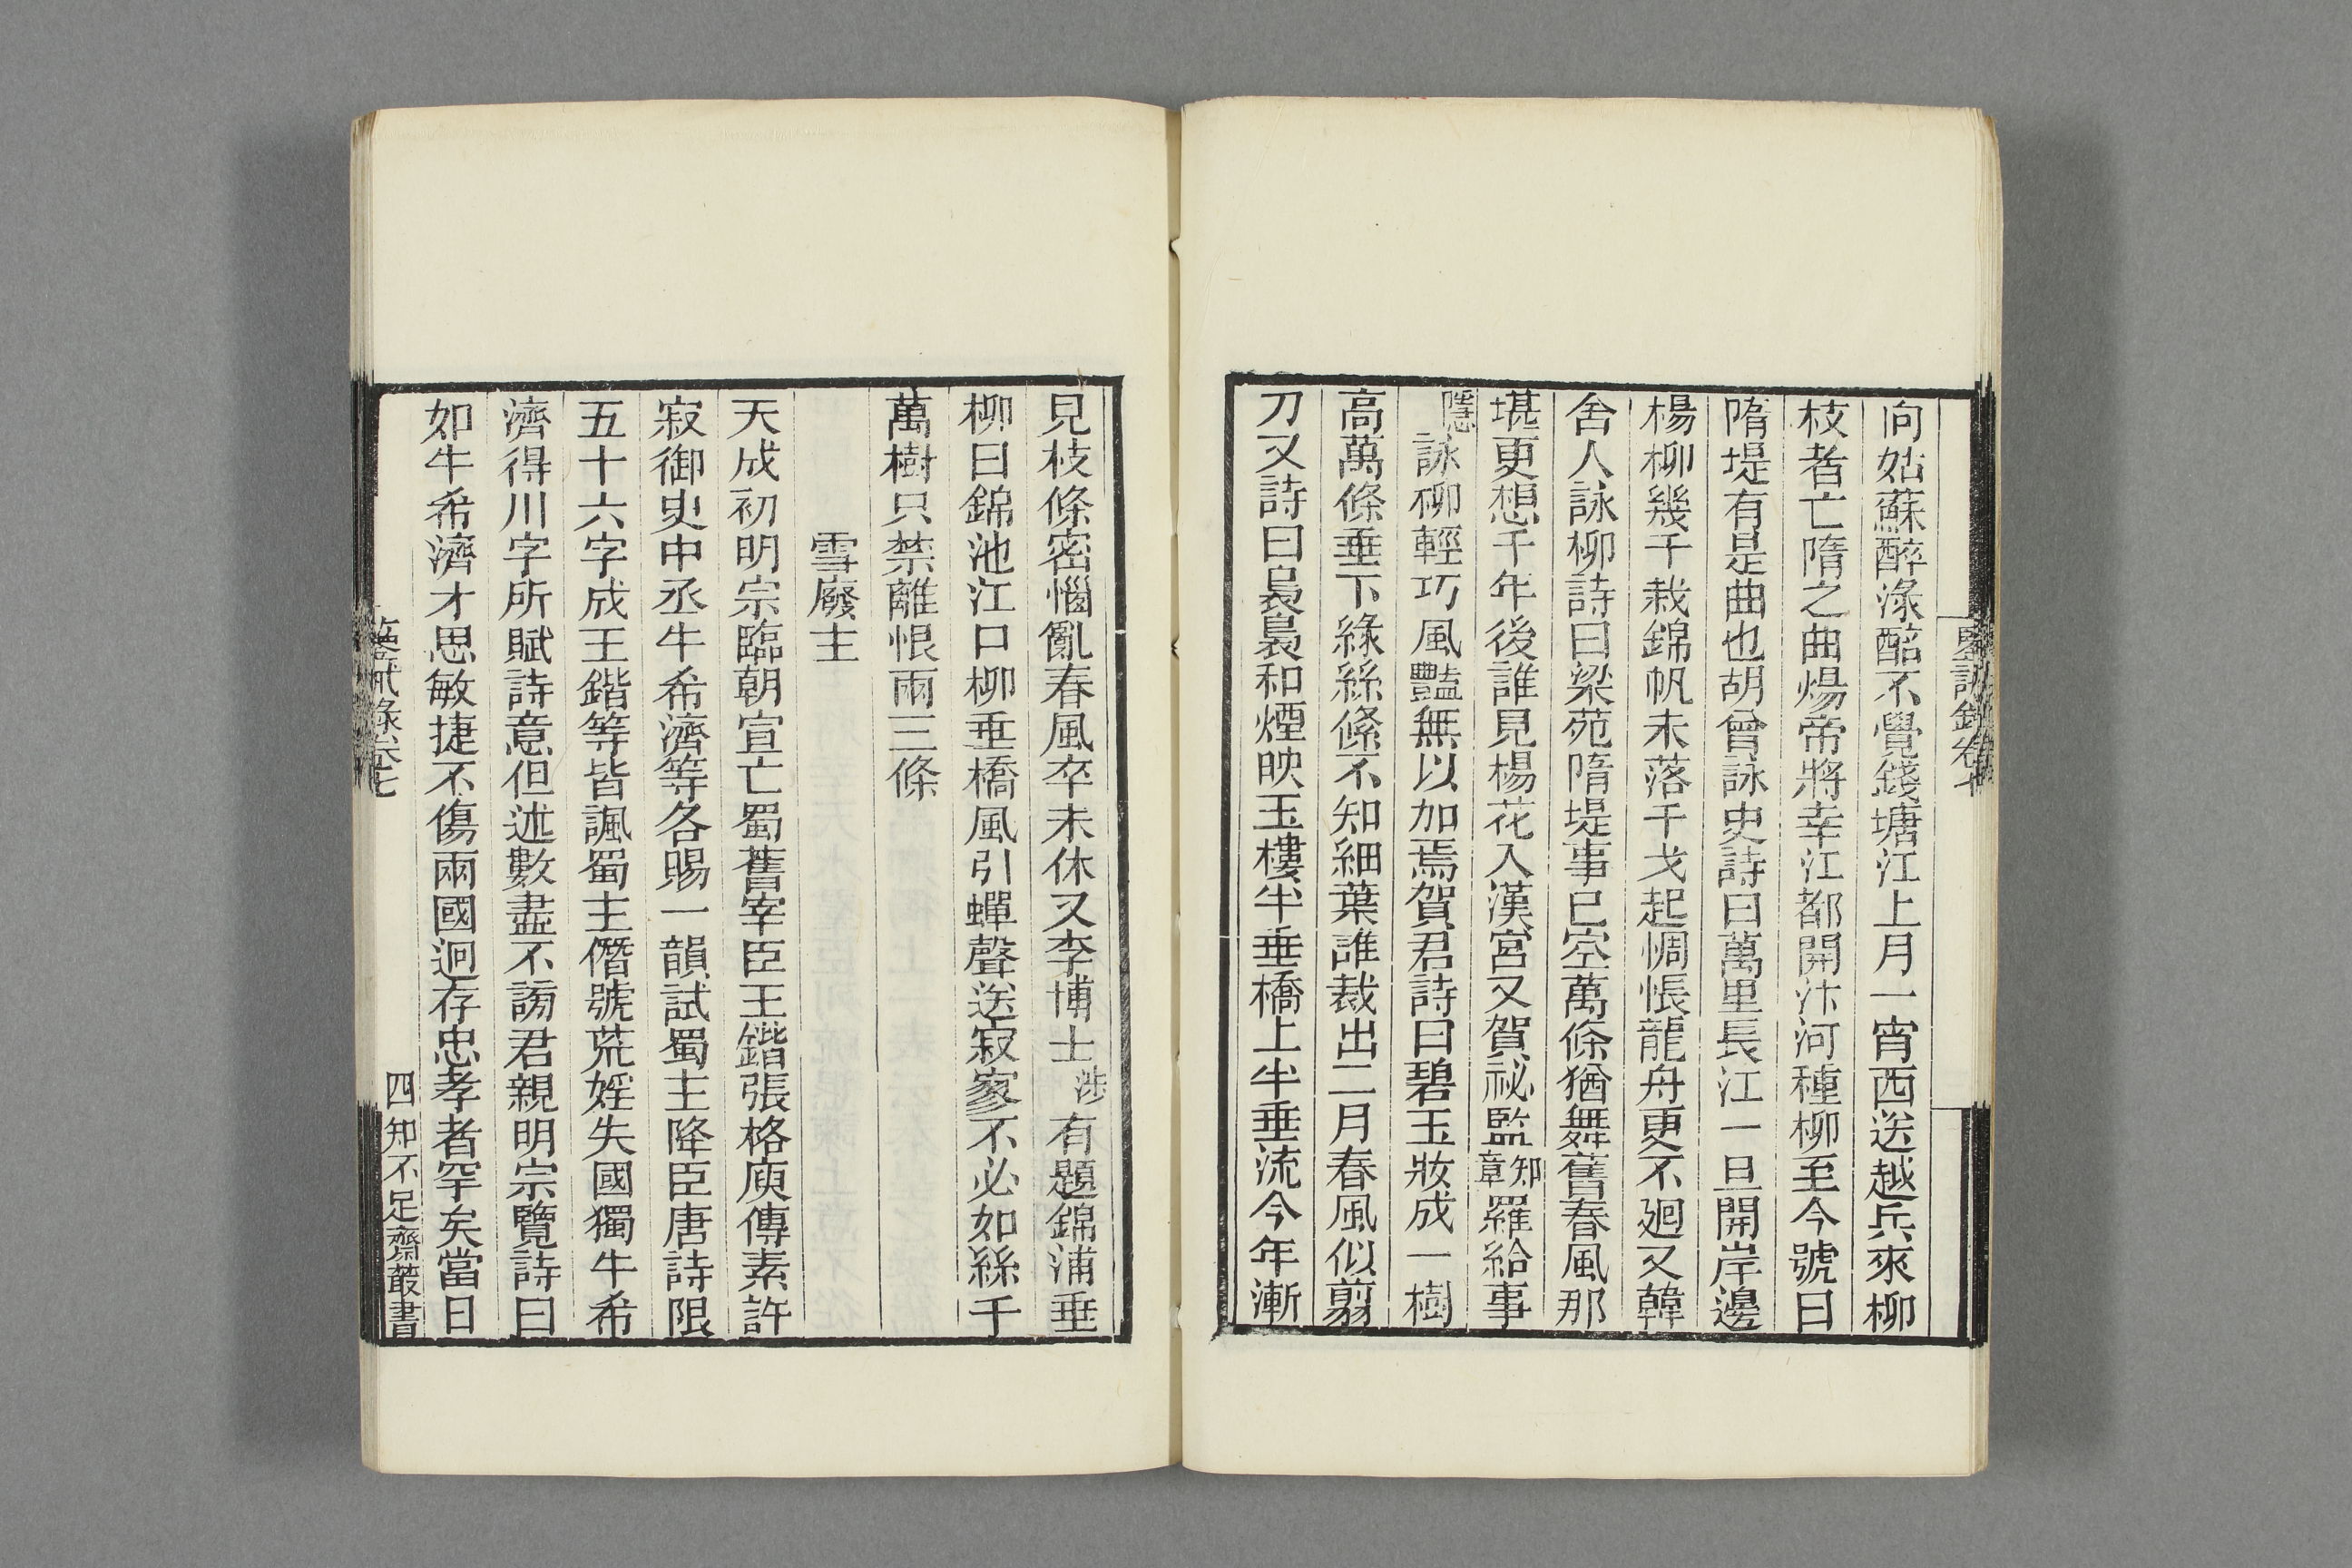 鑒誡錄卷七
向姑蘇醉淥醅不覺錢塘江上月一宵西送越兵來柳
枝者亡隋之曲煬帝將幸江都開汴河種柳至今號曰
隋堤有是曲也胡曾詠史詩曰萬里長江一旦開岸邊
楊柳幾千栽錦帆未落干戈起惆悵龍舟更不迴又韓
舍人詠柳詩曰梁苑隋堤事已空萬條猶舞舊春風那
堪更想千年後誰見楊花入漢宮又賀祕監知章羅給事
隱詠柳輕巧風豔無以加焉賀君詩曰碧玉妝成一樹
高萬條垂下綠絲絛不知細葉誰裁出二月春風似剪
刀又詩曰裊裊和煙映玉樓半垂橋上半垂流今年漸
見枝條密惱亂春風卒未休又李博士涉有題錦浦垂
柳曰錦池江口柳垂橋風引蟬聲送寂寥不必如絲千
萬樹只禁離恨兩三條
雪廢主
天成初明宗臨朝宣亡蜀舊宰臣王鍇張格庾傳素許
寂御史中丞牛希濟等各賜一韻試蜀主降臣唐詩限
五十六字成王鍇等皆諷蜀主僭號荒婬失國獨牛希
濟得川字所賦詩意但述數盡不謗君親明宗覽詩曰
如牛希濟才思敏捷不傷兩國迥存忠孝者罕矣當日
鑒誡錄卷七
四
知不足齋叢書